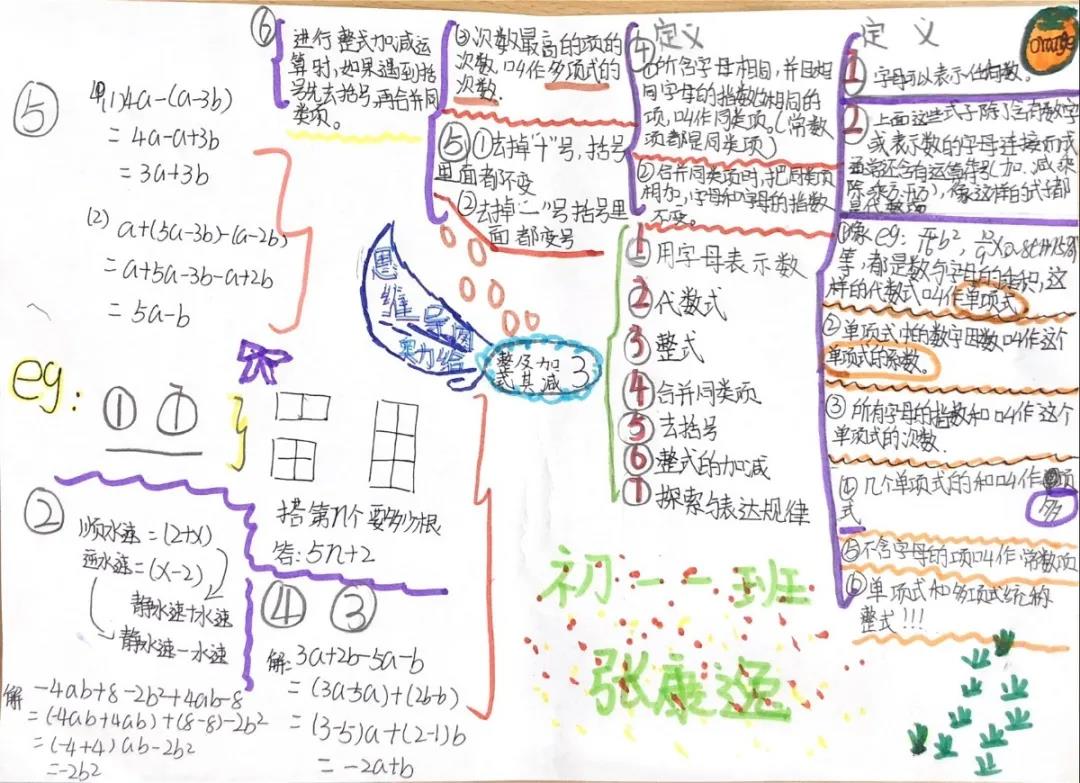 ⑤
(1) 4a-(a-3b)
= 4a-a+3b
= 3a+3b
(2) a+(5a-3b)-(a-2b)
= a+5a-3b-a+2b
= 5a-b
eg:
① ①
②
顺水速=(2+x)
逆水速=(x-2)
静水速+水速
静水速-水速
解 -4ab+8-2b²+4ab-8
=(-4ab+4ab)+(8-8)-2b²
=(-4+4)ab-2b²
=-2b²
搭第n个要多少根
答:5n+2
④ ③
解: 3a+2b-5a-b
= (3a-5a)+(2b-b)
= (3-5)a+(2-1)b
= -2a+b
⑥
进行整式加减运
算时,如果遇到括
号先去括号,再合并同
类项。
③次数最高的项的
次数叫作多项式的
次数.
⑤①去掉“+”号,括号
里面都不变
②去掉“-”号括号里
面都变号
思
维导图
整式及其加减 3
④定义
①所含字母相同,并且相
同字母的指数也相同的
项,叫作同类项。(常数
项都是同类项)
②合并同类项时,把同类项
相加,字母和字母的指数
不变。
1 用字母表示数
2 代数式
3 整式
4 合并同类项
5 去括号
6 整式的加减
7 探索与表达规律
初一一班
张康
定义
orange
1 字母可以表示任何数。
2 上面这些式子除了含有数字
或表示数的字母连接而成
通常还含有运算符号(加、减乘
除乘方),像这样的式子都
是代数式
①像eg:
等,都是数与字母的乘积,这
样的代数式叫作单项式
②单项式中的数字因数叫作这个
单项式的系数。
③所有字母的指数和叫作这个
单项式的次数.
④几个单项式的和叫作多项
式
⑤不含字母的项叫作常数项
⑥单项式和多项式统称
整式!!!